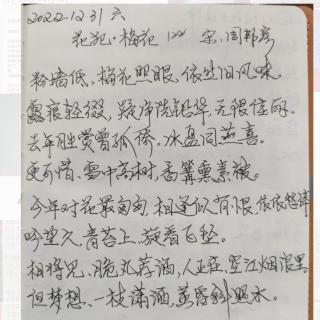 2022-12-31 六
花犯·梅花 宋:周邦彦
粉墙低、梅花照眼,依然旧风味。
露痕轻缀,疑净洗铅华,无限佳丽。
去年胜赏曾孤倚,冰盘同燕喜。
更可惜、雪中高树,香篝熏素被。
今年对花最匆匆,相逢似有恨,依依愁悴
吟望久,青苔上、旋看飞坠。
相将见、脆丸荐酒,人正在、空江烟浪里。
但梦想、一枝潇洒,黄昏斜照水。